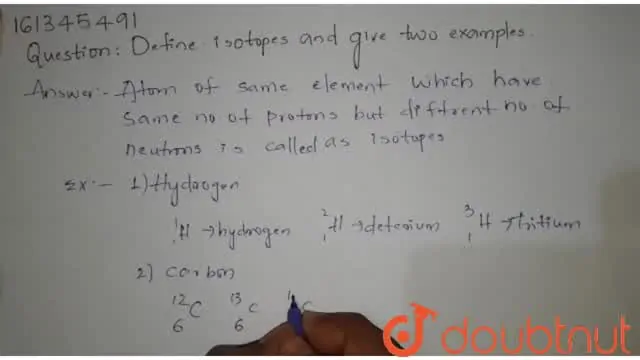 1613454 91
Question: Define isotopes and give two examples.
Answer:- Atom of same element which have
same no of protons but diffrent no of
neutrons is called as isotopes
Ex:- 1) Hydrogen
¹₁H → hydrogen ²₁H → deterium ³₁H → tritium
2) carbon
¹²₆C ¹³₆C
doubtnut